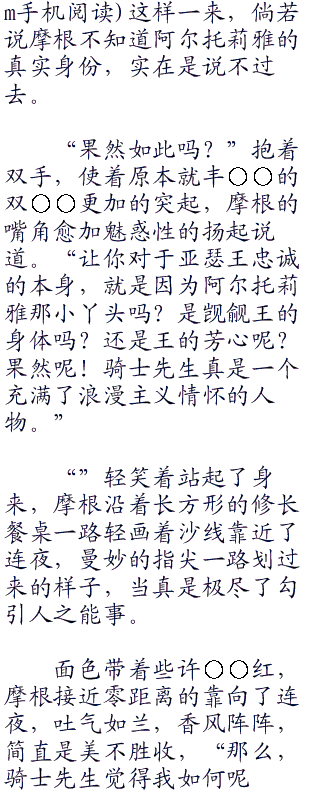 m手机阅读)这样一来，倘若
说摩根不知道阿尔托莉雅的
真实身份，实在是说不过
去。
“果然如此吗？”抱着
双手，使着原本就丰○○的
双○○更加的突起，摩根的
嘴角愈加魅惑性的扬起说
道。“让你对于亚瑟王忠诚
的本身，就是因为阿尔托莉
雅那小丫头吗？是觊觎王的
身体吗？还是王的芳心呢？
果然呢！骑士先生真是一个
充满了浪漫主义情怀的人
物。”
“”轻笑着站起了身
来，摩根沿着长方形的修长
餐桌一路轻画着沙线靠近了
连夜，曼妙的指尖一路划过
来的样子，当真是极尽了勾
引人之能事。
面色带着些许○○红，
摩根接近零距离的靠向了连
夜，吐气如兰，香风阵阵，
简直是美不胜收，“那么，
骑士先生觉得我如何呢